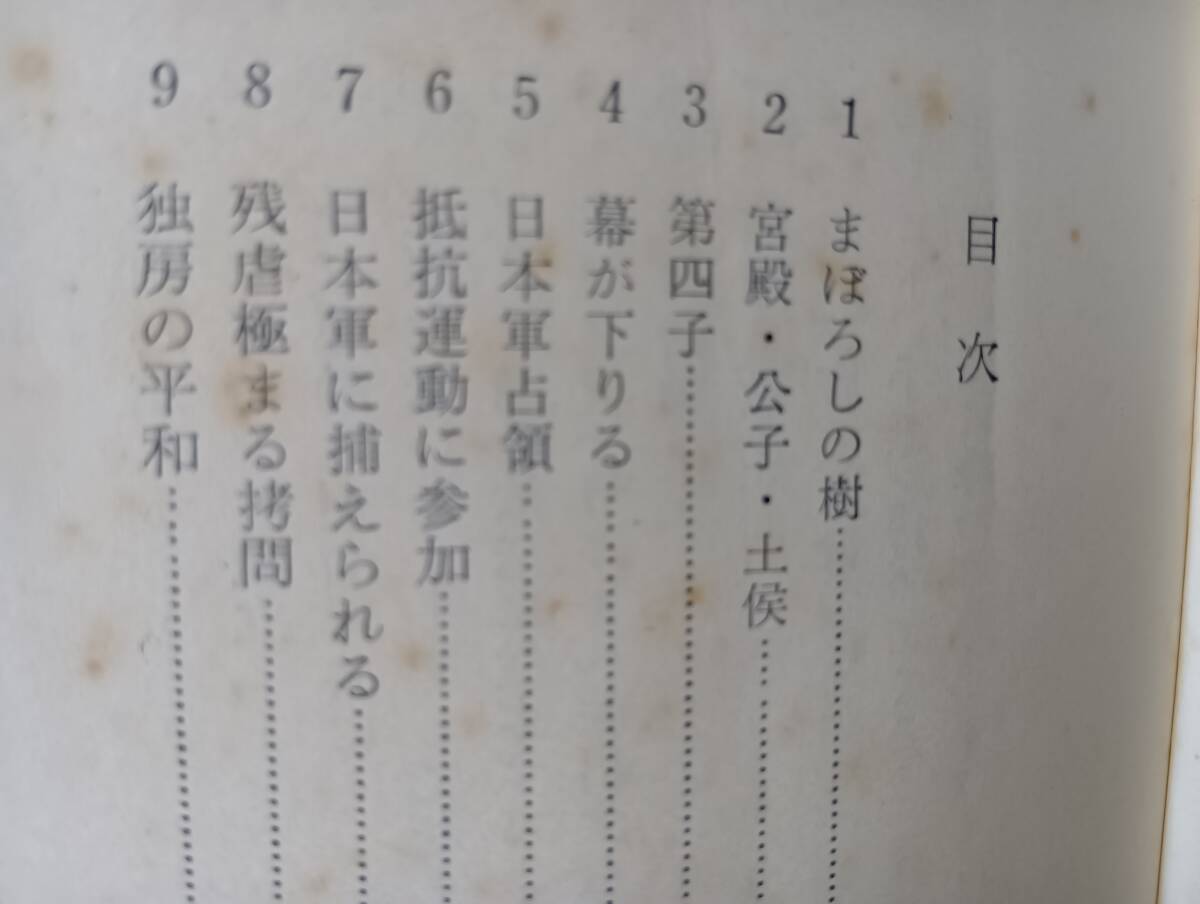 目次
1 まぼろしの樹
2 宮殿・公子・土侯
3 第四子
4 幕が下りる
5 日本軍占領
6 抵抗運動に参加
7 日本軍に捕えられる
8 残虐極まる拷問
9 独房の平和